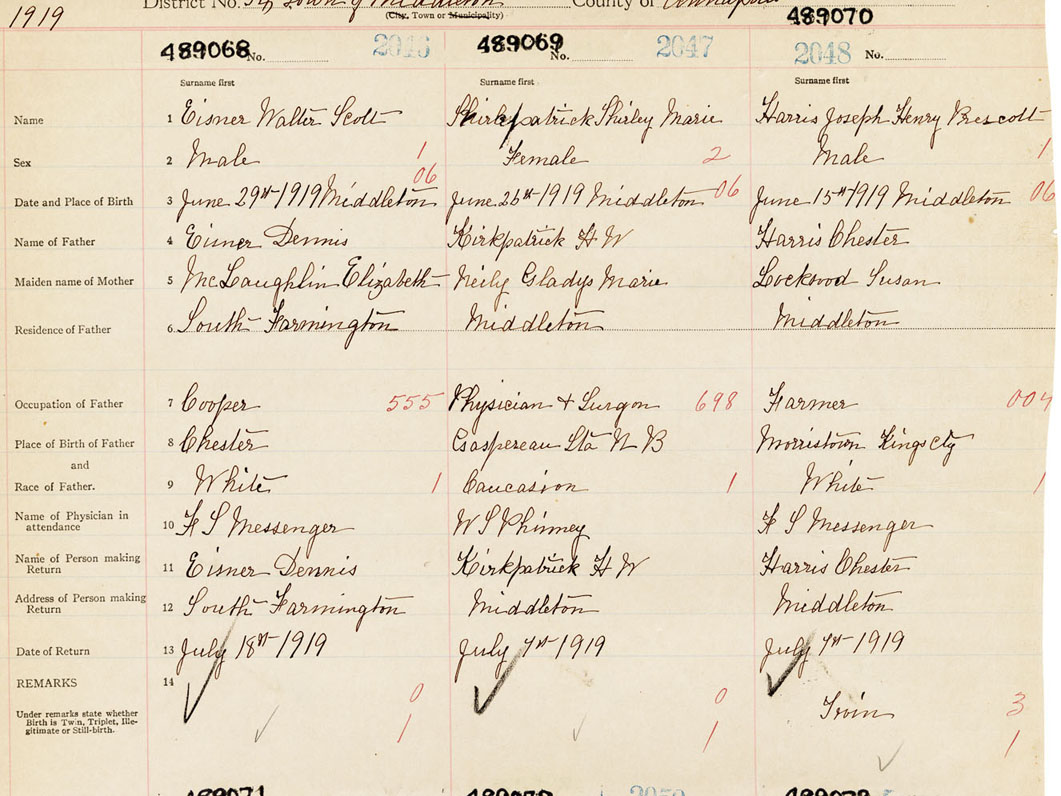 1919 District No. Town of Middleton County of Annapolis
(City, Town or Municipality) 489070
489068 No. 2046 489069 No. 2047 2048 No.
Surname first Surname first Surname first
Name 1 Eisner Walter Scott Shirley Marie Harris Joseph Henry Prescott
Sex 2 Male 1 Female 2 Male 1
06
Date and Place of Birth 3 June 29th 1919 Middleton June 26th 1919 Middleton 06 June 15th 1919 Middleton 06
Name of Father 4 Eisner Dennis Kirkpatrick H W Harris Chester
Maiden name of Mother 5 McLaughlin Elizabeth Neily Gladys Marie Lockwood Susan
Residence of Father 6 South Farmington Middleton Middleton
Occupation of Father 7 Cooper 555 Physician + Surgon 698 Farmer 004
Place of Birth of Father 8 Chester Gaspereau Sta N B Morristown Kings cty
and
Race of Father. 9 White 1 Caucasion 1 White 1
Name of Physician in attendance 10 F S Messenger W S Phinney F S Messenger
Name of Person making Return 11 Eisner Dennis Kirkpatrick H W Harris Chester
Address of Person making Return 12 South Farmington Middleton Middleton
Date of Return 13 July 18th 1919 July 7st 1919 July 7st 1919
REMARKS 14
0 0 Twin 3
Under remarks state whether
Birth is Twin, Triplet, Ille-
gitimate or Still-birth.
1 1 1
489071